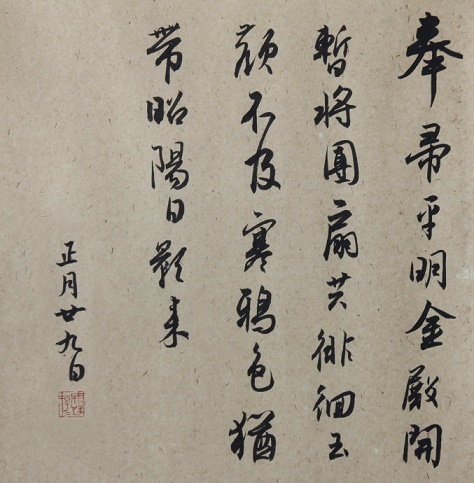 奉帚平明金殿開
暫將團扇共徘徊玉
顔不及寒鴉色猶
帶昭陽日影来
正月廿九日